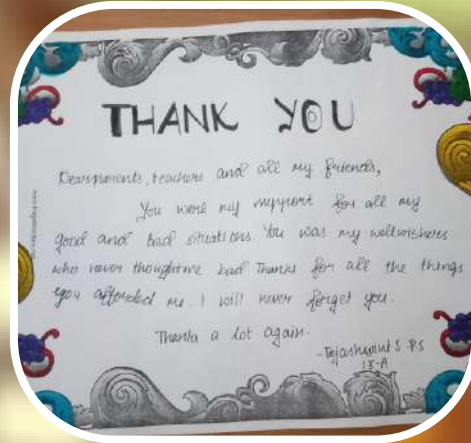 THANK YOU
Dear parents, teachers and all my friends,
You were my support for all my
good and bad situations. You was my wellwishers
who never thought me bad Thanks for all the things
you afforded me. I will never forget you.
Thanks a lot again.
- Tejashwini S. P.S
IX-A